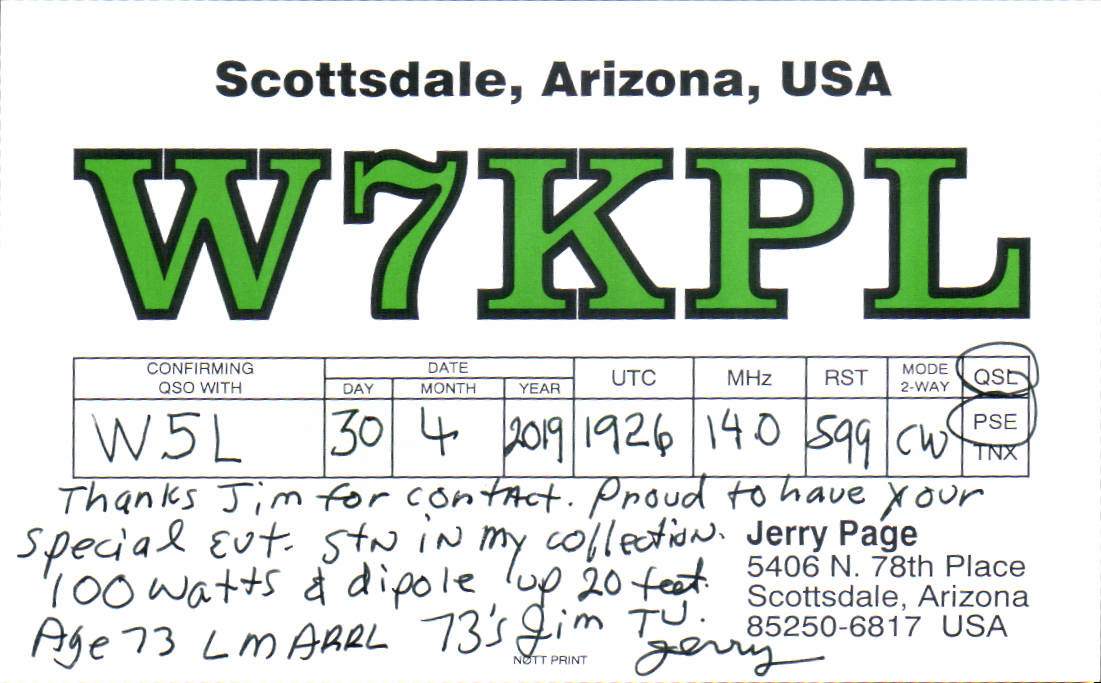 Scottsdale, Arizona, USA
W7KPL
CONFIRMING QSO WITH DATE DAY MONTH YEAR UTC MHz RST MODE 2-WAY QSL PSE TNX
W5L 30 4 2019 1926 14.0 599 CW
Thanks Jim for contact. Proud to have your
special evt. stn in my collection.
100 watts & dipole up 20 feet.
Age 73 LM ARRL 73's Jim TU.
Jerry
Jerry Page
5406 N. 78th Place
Scottsdale, Arizona
85250-6817 USA
NØTT PRINT